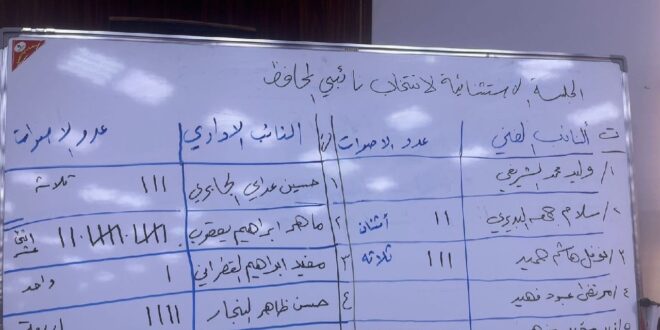 الجلسة الاستثنائية لانتخاب نائبي المحافظ
ت النائب الفني عدد الاصوات ت النائب الاداري عدد الاصوات
١/ وليد محمد الشريفي ١ حسين عداي الجابري ||| ثلاثة
٢/ سلام جمعه البديري || أثنان ٢ ماهر ابراهيم يعقوب || اثنى عشر
٣/ نوفل هاشم حميد ||| ثلاثه ٣ مفيد ابراهيم القطراني | واحد
٤/ مرتضى عبود فهيد ٤ حسن ظاهر النجار |||| اربعة